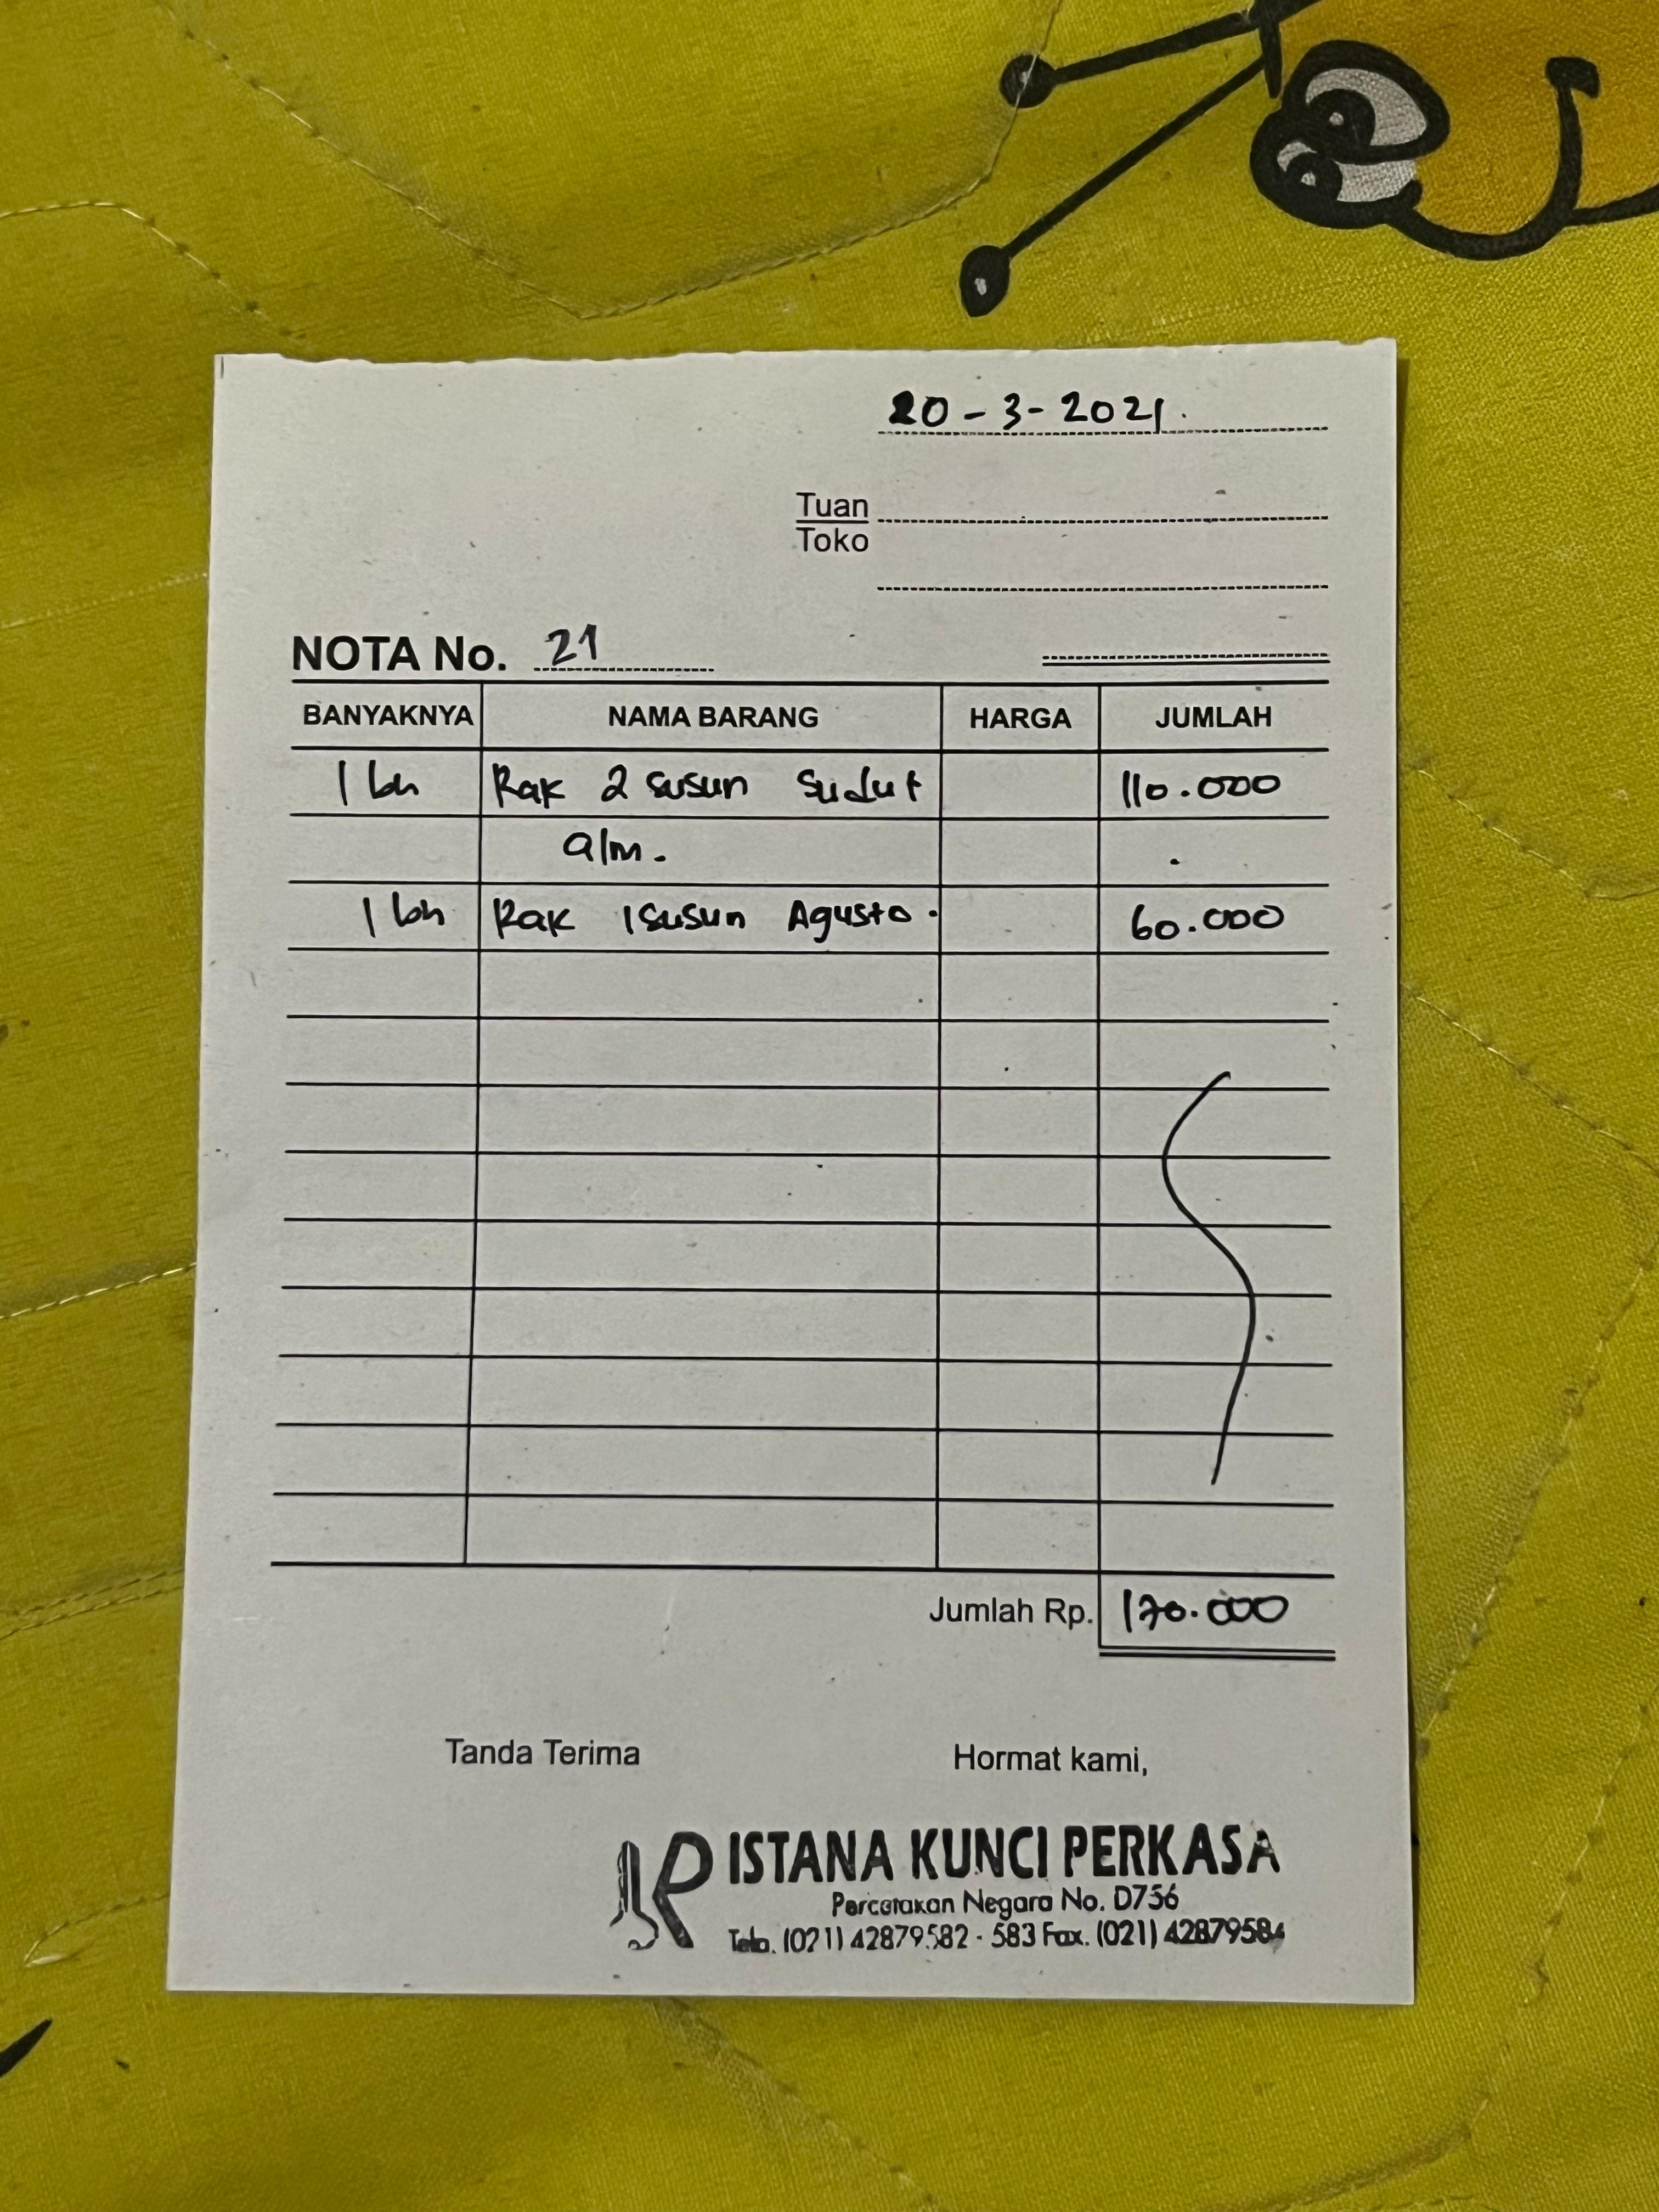 20 - 3 - 2021.
Tuan
Toko
NOTA No. 21
BANYAKNYA NAMA BARANG HARGA JUMLAH
1 bh Rak 2 susun sudut 110.000
alm.
1 bh Rak 1 susun Agusto. 60.000
Jumlah Rp. 170.000
Tanda Terima Hormat kami,
ISTANA KUNCI PERKASA
Percetakan Negara No. D756
Telp. (021) 42879582 - 583 Fax. (021) 42879584